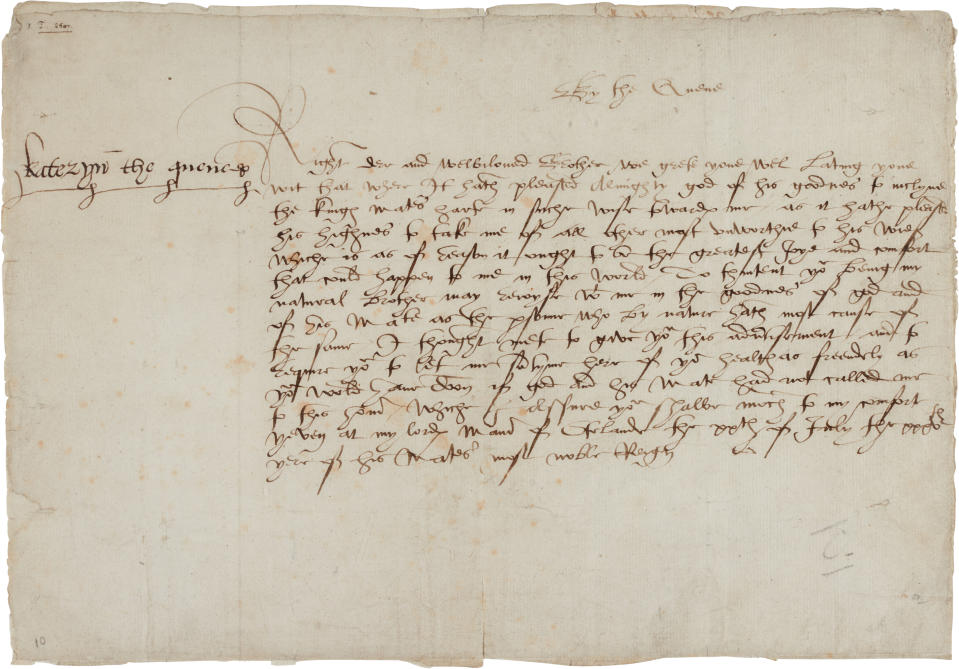 By the Quene
Kateryn the quene KP
Right der and welbiloved Brother we grete youe wel Lating youe
wit that wher It hath pleased Almighty god of his goodnes to inclyne
the kingh mates harte in suche wise towards me as it hathe pleased
his highnes to take me of all other most unworthie to his wief
whiche is as of reason it ought to be the greatest Joye and comfort
that could happen to me in this world To thintent yor being my
natural brother may reioyse wt me in the goodnes of god and
of his Mate as the psonne who by nature hath most cause of
the same I thought mete to give yor this advertisement and to
require yor to let me sotyme here of yor health as freendely as
yor wold have doon if god and his Mate had not called me
to this honor whiche I assure yor shalbe moch to my comfort
yeven at my lords Manor of Otlands the xxth of July the xxxvth
yere of his Mates most noble Reign
10